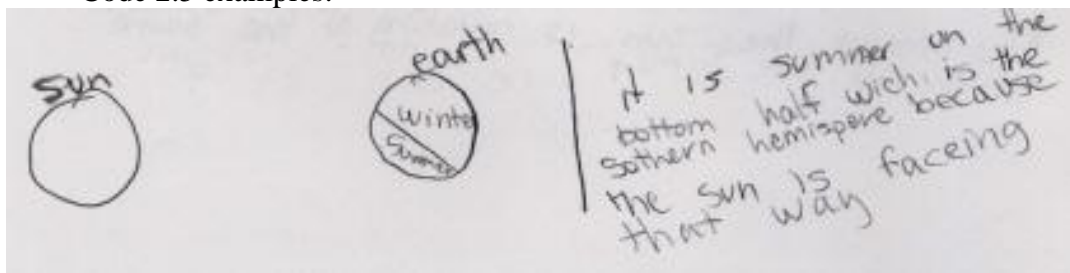 Code 2.5 examples:
sun
earth
winter
summer
it is summer on the
bottom half wich is the
sothern hemispere because
the sun is faceing
that way